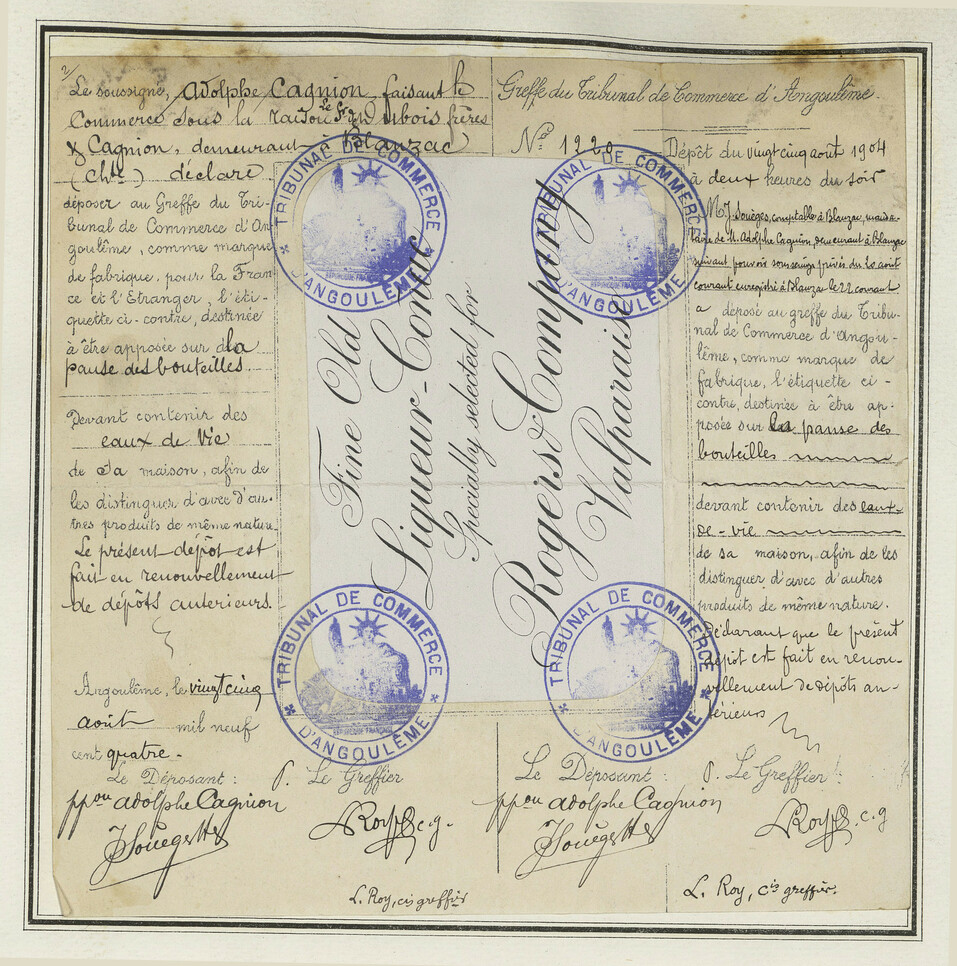 2/
Le soussigné, Adolphe Cagnion faisant le
Commerce sous la raison Dubois frères
& Cagnion, demeurant à Blanzac
(Chte) déclare
déposer au Greffe du Tri-
bunal de Commerce d'An-
goulême, comme marque
de fabrique, pour la Fran-
ce et l'Etranger, l'éti-
quette ci-contre, destinée
à être apposée sur la
pause des bouteilles
Devant contenir des
eaux de vie
de sa maison, afin de
les distinguer d'avec d'au-
tres produits de même nature.
Le présent dépôt est
fait en renouvellement
de dépôts antérieurs.
Angoulême, le vingt cinq
août mil neuf
cent quatre.
Le Déposant :
ppon Adolphe Cagnion
J Souèges
P. Le Greffier
Roy c.g.
L. Roy, cis greffier
Fine Old
Liqueur-Cognac
Specially selected for
Rogers & Company
Valparaiso
TRIBUNAL DE COMMERCE
D'ANGOULÊME
RÉPUBLIQUE FRANÇAISE
TRIBUNAL DE COMMERCE
D'ANGOULÊME
TRIBUNAL DE COMMERCE
D'ANGOULÊME
RÉPUBLIQUE FRANÇAISE
TRIBUNAL DE COMMERCE
D'ANGOULÊME
RÉPUBLIQUE FRANÇAISE
Greffe du Tribunal de Commerce d'Angoulême
No 1220
Dépôt du vingt cinq août 1904
à deux heures du soir
M. J. Souèges, comptable à Blanzac, manda-
taire de M. Adolphe Cagnion demeurant à Blanzac
suivant pouvoir sous seings privés du 20 août
courant enregistré à Blanzac le 22 courant
a déposé au greffe du Tribu-
nal de Commerce d'Angou-
lême, comme marque de
fabrique, l'étiquette ci-
contre, destinée à être ap-
posée sur la pause des
bouteilles
devant contenir des eaux-
de-vie
de sa maison, afin de les
distinguer d'avec d'autres
produits de même nature.
Déclarant que le présent
dépôt est fait en renou-
vellement de dépôts an-
térieurs
Le Déposant :
ppon Adolphe Cagnion
J Souèges
P. Le Greffier :
Roy c.g
L. Roy, cis greffier.